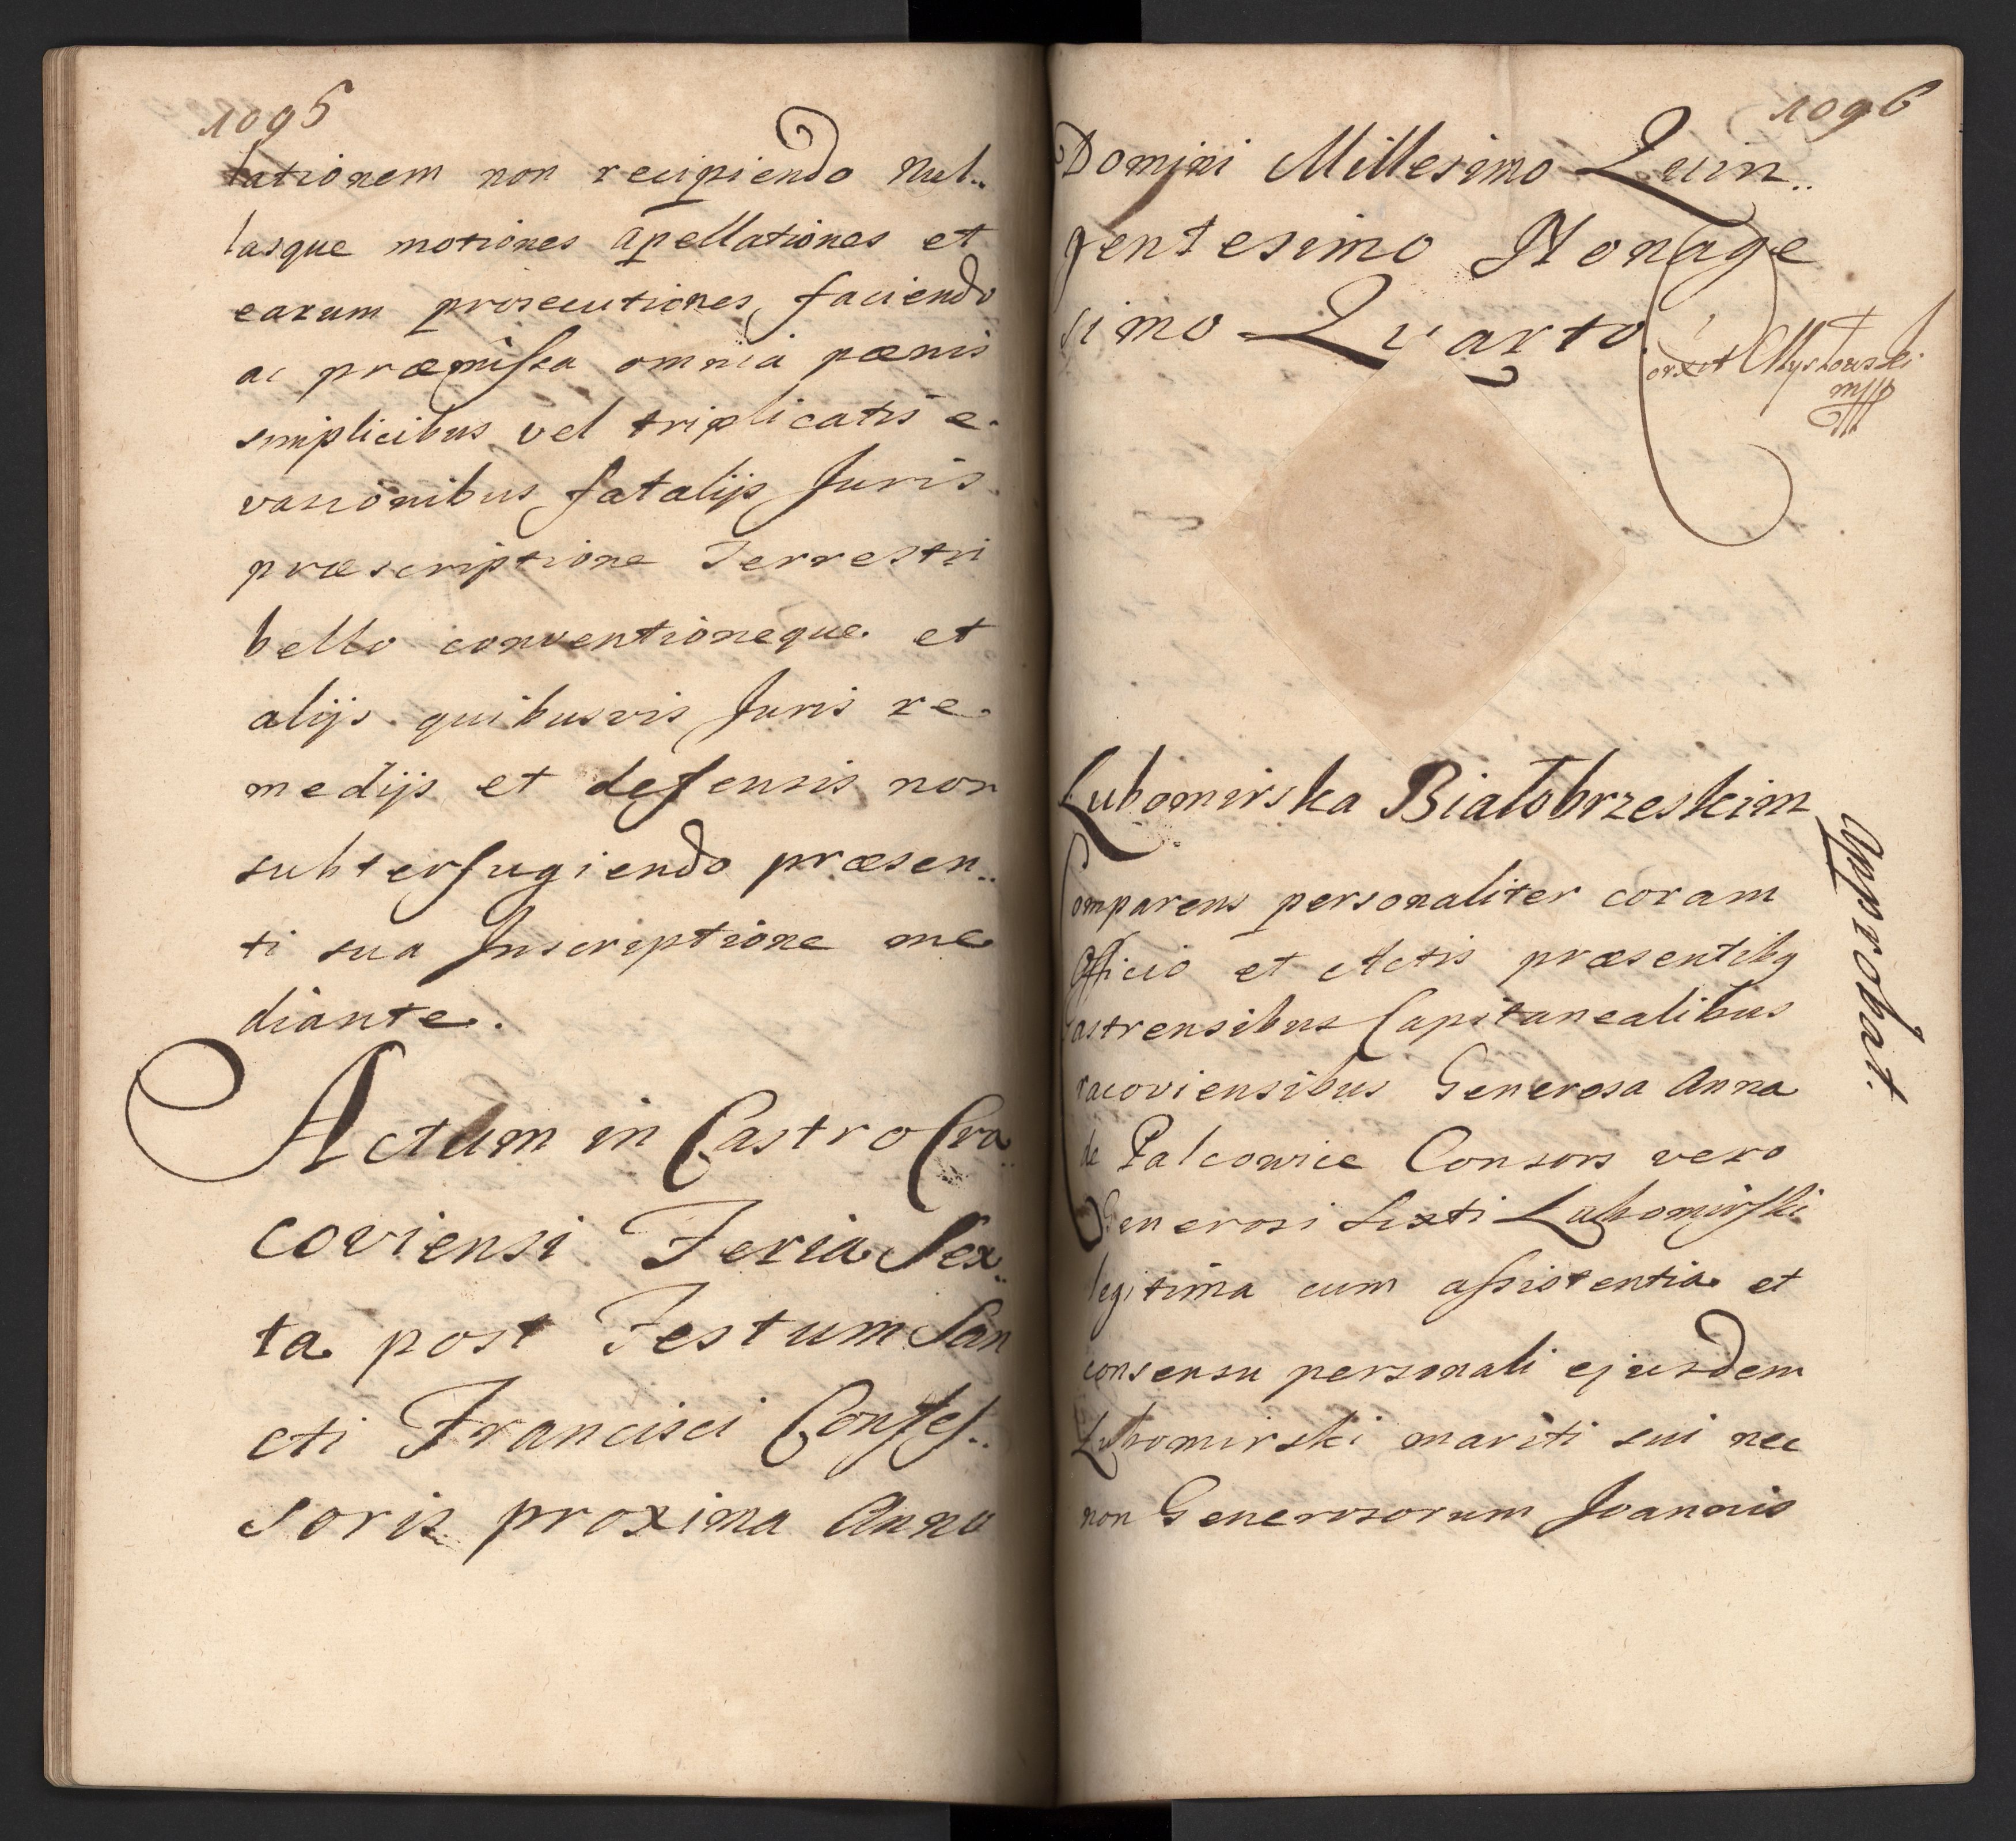 1095
tationem non recipiendo nul..
lasque motiones apellationes et
earum prosecutiones faciendo
ac præmissa omnia pœnis
simplicibus vel triplicatis e.
vasionibus fatalijs Juris
præscriptione Terrestri
bello conventioneque et
alijs quibusvis Juris re.
medijs et defensis non
subterfugiendo præsen..
ti sua Inscriptione me
diante.
Actum in Castro Cra..
coviensi Feria Sex..
ta post Festum San
cti Francisci Confes..
soris proxima Anno
1096
Domini Millesimo Quin..
gentesimo Nonage
simo Quarto
Lubomirska Białobrzeskim
Approbat.
Comparens personaliter coram
Officio et Actis præsentibq
Castrensibus Capitanealibus
Cracoviensibus Generosa Anna
de Palcowice Consors vero
Generosi Sixti Lubomirski
legitima cum assistentia et
consensu personali ejusdem
Lubomirski mariti sui nec
non Generosorum Joannis